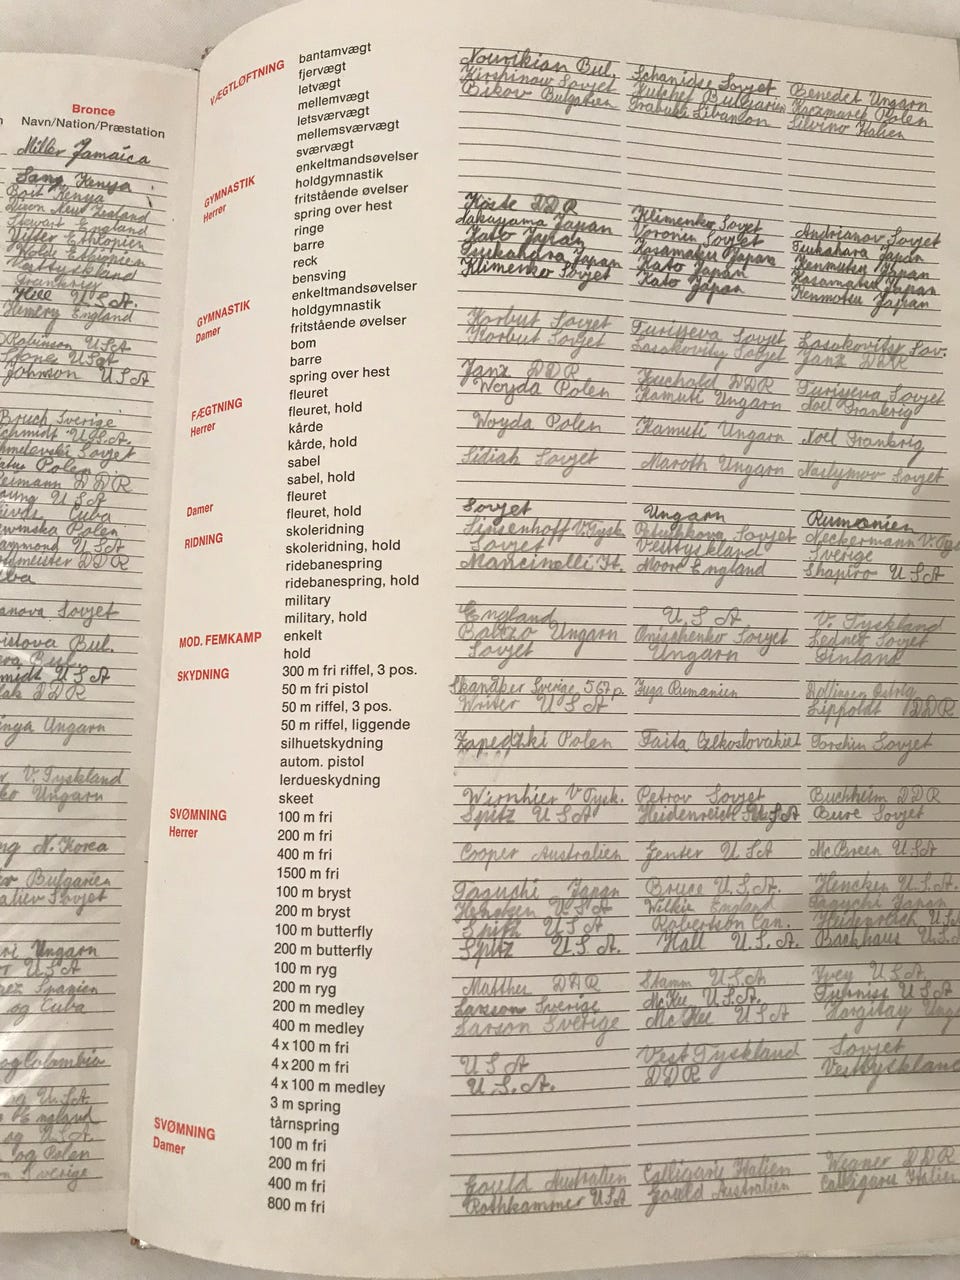 Bronce
Navn/Nation/Præstation
Miller Jamaica
Sang Kenya
Boit Kenya
Dixon New Zealand
Stewart England
Etiopien
Vesttyskland
Frankrig
Hill U.S.A.
Hemery England
Robinson USA
Jones USA
Johnson USA
Bruch Sverige
Schmidt U.S.A.
Sovjet
Polen
DDR
USA
Cuba
Polen
USA
DDR
Sovjet
Bul.
Bul.
USA
DDR
Ungarn
V. Tyskland
Ungarn
N. Korea
Bulgarien
Sovjet
Ungarn
USA
Spanien
og Cuba
og Colombia
og U.S.A.
England
og U.S.A.
og Polen
Sverige
VÆGTLØFTNING
bantamvægt
fjervægt Nourikian Bul. Schanidse Sovjet Benedek Ungarn
letvægt Kirshinow Sovjet Kutchef Bulgarien Kaczmarek Polen
mellemvægt Bikov Bulgarien Trabulsi Libanon Silvino Italien
letsværvægt
mellemsværvægt
sværvægt
GYMNASTIK
Herrer
enkeltmandsøvelser
holdgymnastik
fritstående øvelser
spring over hest Köste DDR Klimenko Sovjet Andrianov Sovjet
ringe Nakayama Japan Voronin Sovjet Tsukahara Japan
barre Kato Japan Kasamatsu Japan Kenmotsu Japan
reck Tsukahara Japan Kato Japan Kasamatsu Japan
bensving Klimenko Sovjet Kato Japan Kenmotsu Japan
GYMNASTIK
Damer
enkeltmandsøvelser
holdgymnastik
fritstående øvelser Korbut Sovjet Turisjeva Sovjet Lasakovitsj Sov.
bom Korbut Sovjet Lasakovitsj Sovjet Janz DDR
barre
spring over hest Janz DDR Zuchold DDR Turisjeva Sovjet
FÆGTNING
Herrer
fleuret Woyda Polen Kamuti Ungarn Noel Frankrig
fleuret, hold
kårde Woyda Polen Kamuti Ungarn Noel Frankrig
kårde, hold
sabel Sidiak Sovjet Maroth Ungarn Nazlymov Sovjet
sabel, hold
Damer
fleuret
fleuret, hold Sovjet Ungarn Rumænien
RIDNING
skoleridning Linsenhoff V. Tysk. Petushkova Sovjet Neckermann V.
skoleridning, hold Sovjet Vesttyskland Sverige
ridebanespring Mancinelli It. Moore England Shapiro USA
ridebanespring, hold
military
military, hold England U.S.A V. Tyskland
MOD. FEMKAMP
enkelt Balczo Ungarn Onischenko Sovjet Lednev Sovjet
hold Sovjet Ungarn Finland
SKYDNING
300 m fri riffel, 3 pos.
50 m fri pistol Skanåker Sverige, 567 p. Iuga Rumænien Dollinger Østrig
50 m riffel, 3 pos. Writer USA Lippoldt DDR
50 m riffel, liggende
silhuetskydning Zapedzki Polen Faita Tjekoslovakiet Torshin Sovjet
autom. pistol
lerdueskydning
skeet Wirnhier V Tysk. Petrov Sovjet Buchheim DDR
SVØMNING
Herrer
100 m fri Spitz USA Heidenreich USA Bure Sovjet
200 m fri
400 m fri Cooper Australien Genter USA McBreen USA
1500 m fri
100 m bryst Taguchi Japan Bruce U.S.A. Hencken U.S.A.
200 m bryst Hencken U.S.A Wilkie England Taguchi Japan
100 m butterfly Spitz USA Robertson Can. Heidenreich U.S.A
200 m butterfly Spitz U.S.A. Hall U.S.A. Backhaus U.S.A
100 m ryg
200 m ryg Matthes DDR Stamm U.S.A Ivey U.S.A
200 m medley Larsson Sverige McKee U.S.A. Furniss USA
400 m medley Larson Sverige McKee USA Hargitay
4 x 100 m fri
4 x 200 m fri USA Vest Tyskland Sovjet
4 x 100 m medley U.S.A. DDR Vesttyskland
3 m spring
tårnspring
SVØMNING
Damer
100 m fri
200 m fri
400 m fri Gould Australien Calligaris Italien Wegner DDR
800 m fri Rothhammer USA Gould Australien Calligaris Italien